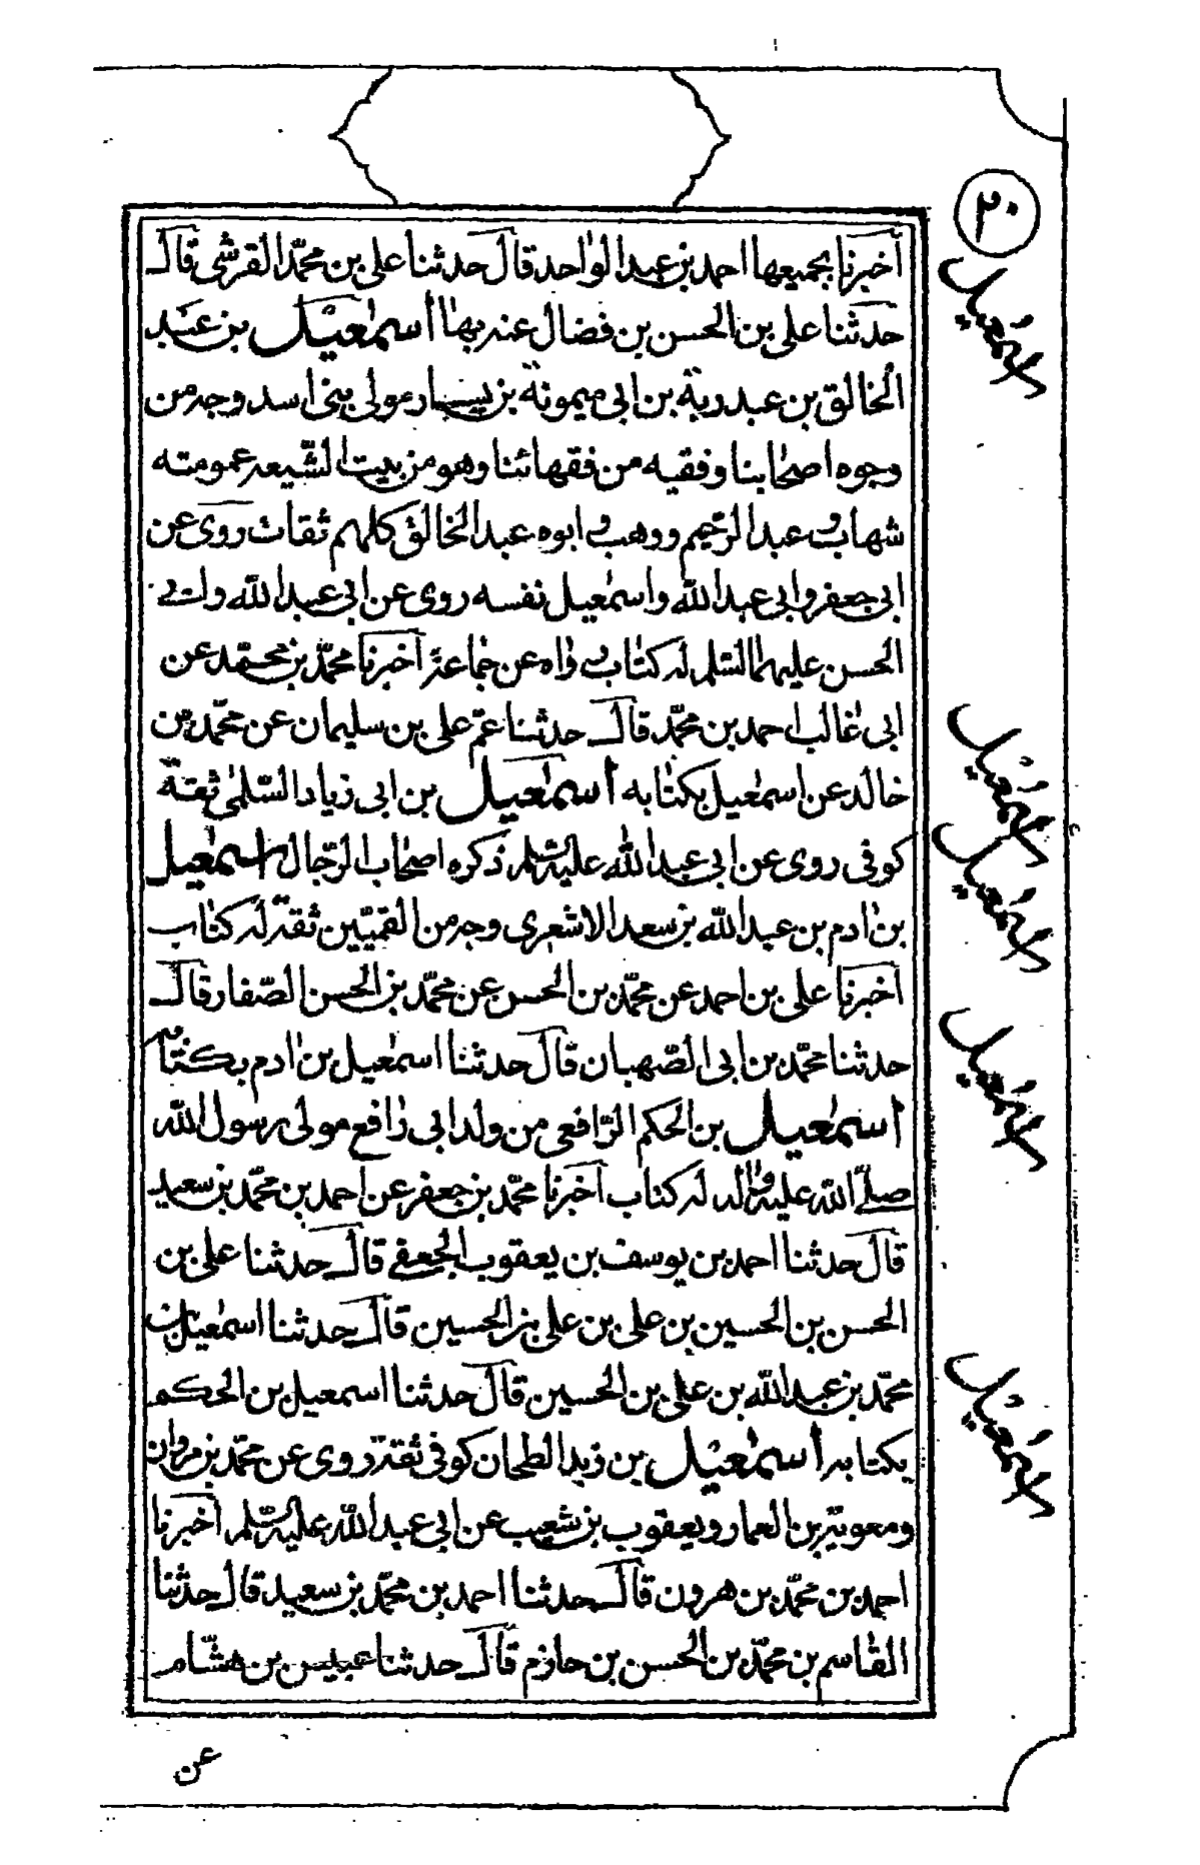 ٢٠
أخبرنا بجميعها احمد بن عبد الواحد قال حدثنا علی بن محمّد القرشی قال
حدثنا علی بن الحسن بن فضال عنه بها أسمٰعیل بن عبد
الخالق بن عبد ربة بن ابی میمونة بن یسار مولی بنی اسد وجه من
وجوه اصحٰابنا وفقیه من فقهائنا وهو من بیت الشّیعه عمومته
شهاب و عبد الرّحیم و وهب و ابوه عبد الخالق کلهم ثقات روی عن
ابی جعفر و ابی عبد اللّه واسمٰعیل نفسه روی عن ابی عبد اللّه وابی
الحسن علیهما السّلم له کتٰاب رواه عن جماعة أخبرنا محمّد بن محمّد عن
ابی غالب احمد بن محمّد قال حدثنا عمّ علی بن سلیمان عن محمّد بن
خالد عن اسمٰعیل بکتٰابه أسمٰعیل بن ابی زیاد السّلمیٰ ثقة
کوفی روی عن ابی عبد اللّٰه علیه السّلم ذکره اصحٰاب الرّجال اسمٰعیل
بن اٰدم بن عبد اللّه بن سعد الاشعری وجه من القمیّین ثقة له کتٰاب
أخبرنا علی بن احمد عن محمّد بن الحسن عن محمّد بن الحسن الصّفار قال
حدثنا محمّد بن ابی الصّهبان قال حدثنا اسمٰعیل بن اٰدم بکتٰابه
أسمٰعیل بن الحکم الرّافعی من ولد ابی رٰافع مولی رسول اللّه
صلّی اللّه علیه واٰله له کتاب أخبرنا محمّد بن جعفر عن احمد بن محمّد بن سعید
قال حدثنا احمد بن یوسف بن یعقوب الجعفی قال حدثنا علی بن
الحسن بن الحسین بن علی بن علی بن الحسین قال حدثنا اسمٰعیل بن
محمّد بن عبد اللّه بن علی بن الحسین قال حدثنا اسمعیل بن الحکم
بکتابه أسمٰعیل بن زید الطحان کوفی ثقة روی عن محمّد بن مروان
ومعویة بن العمار ویعقوب بن شعیب عن ابی عبد اللّه علیه السّلم أخبرنا
احمد بن محمّد بن هرون قال حدثنا احمد بن محمّد بن سعید قال حدثنا
القٰاسم بن محمّد بن الحسن بن حازم قال حدثنا عبیس بن هشّام
عن
اسمٰعیل
اسمٰعیل
اسمٰعیل
اسمٰعیل
اسمٰعیل